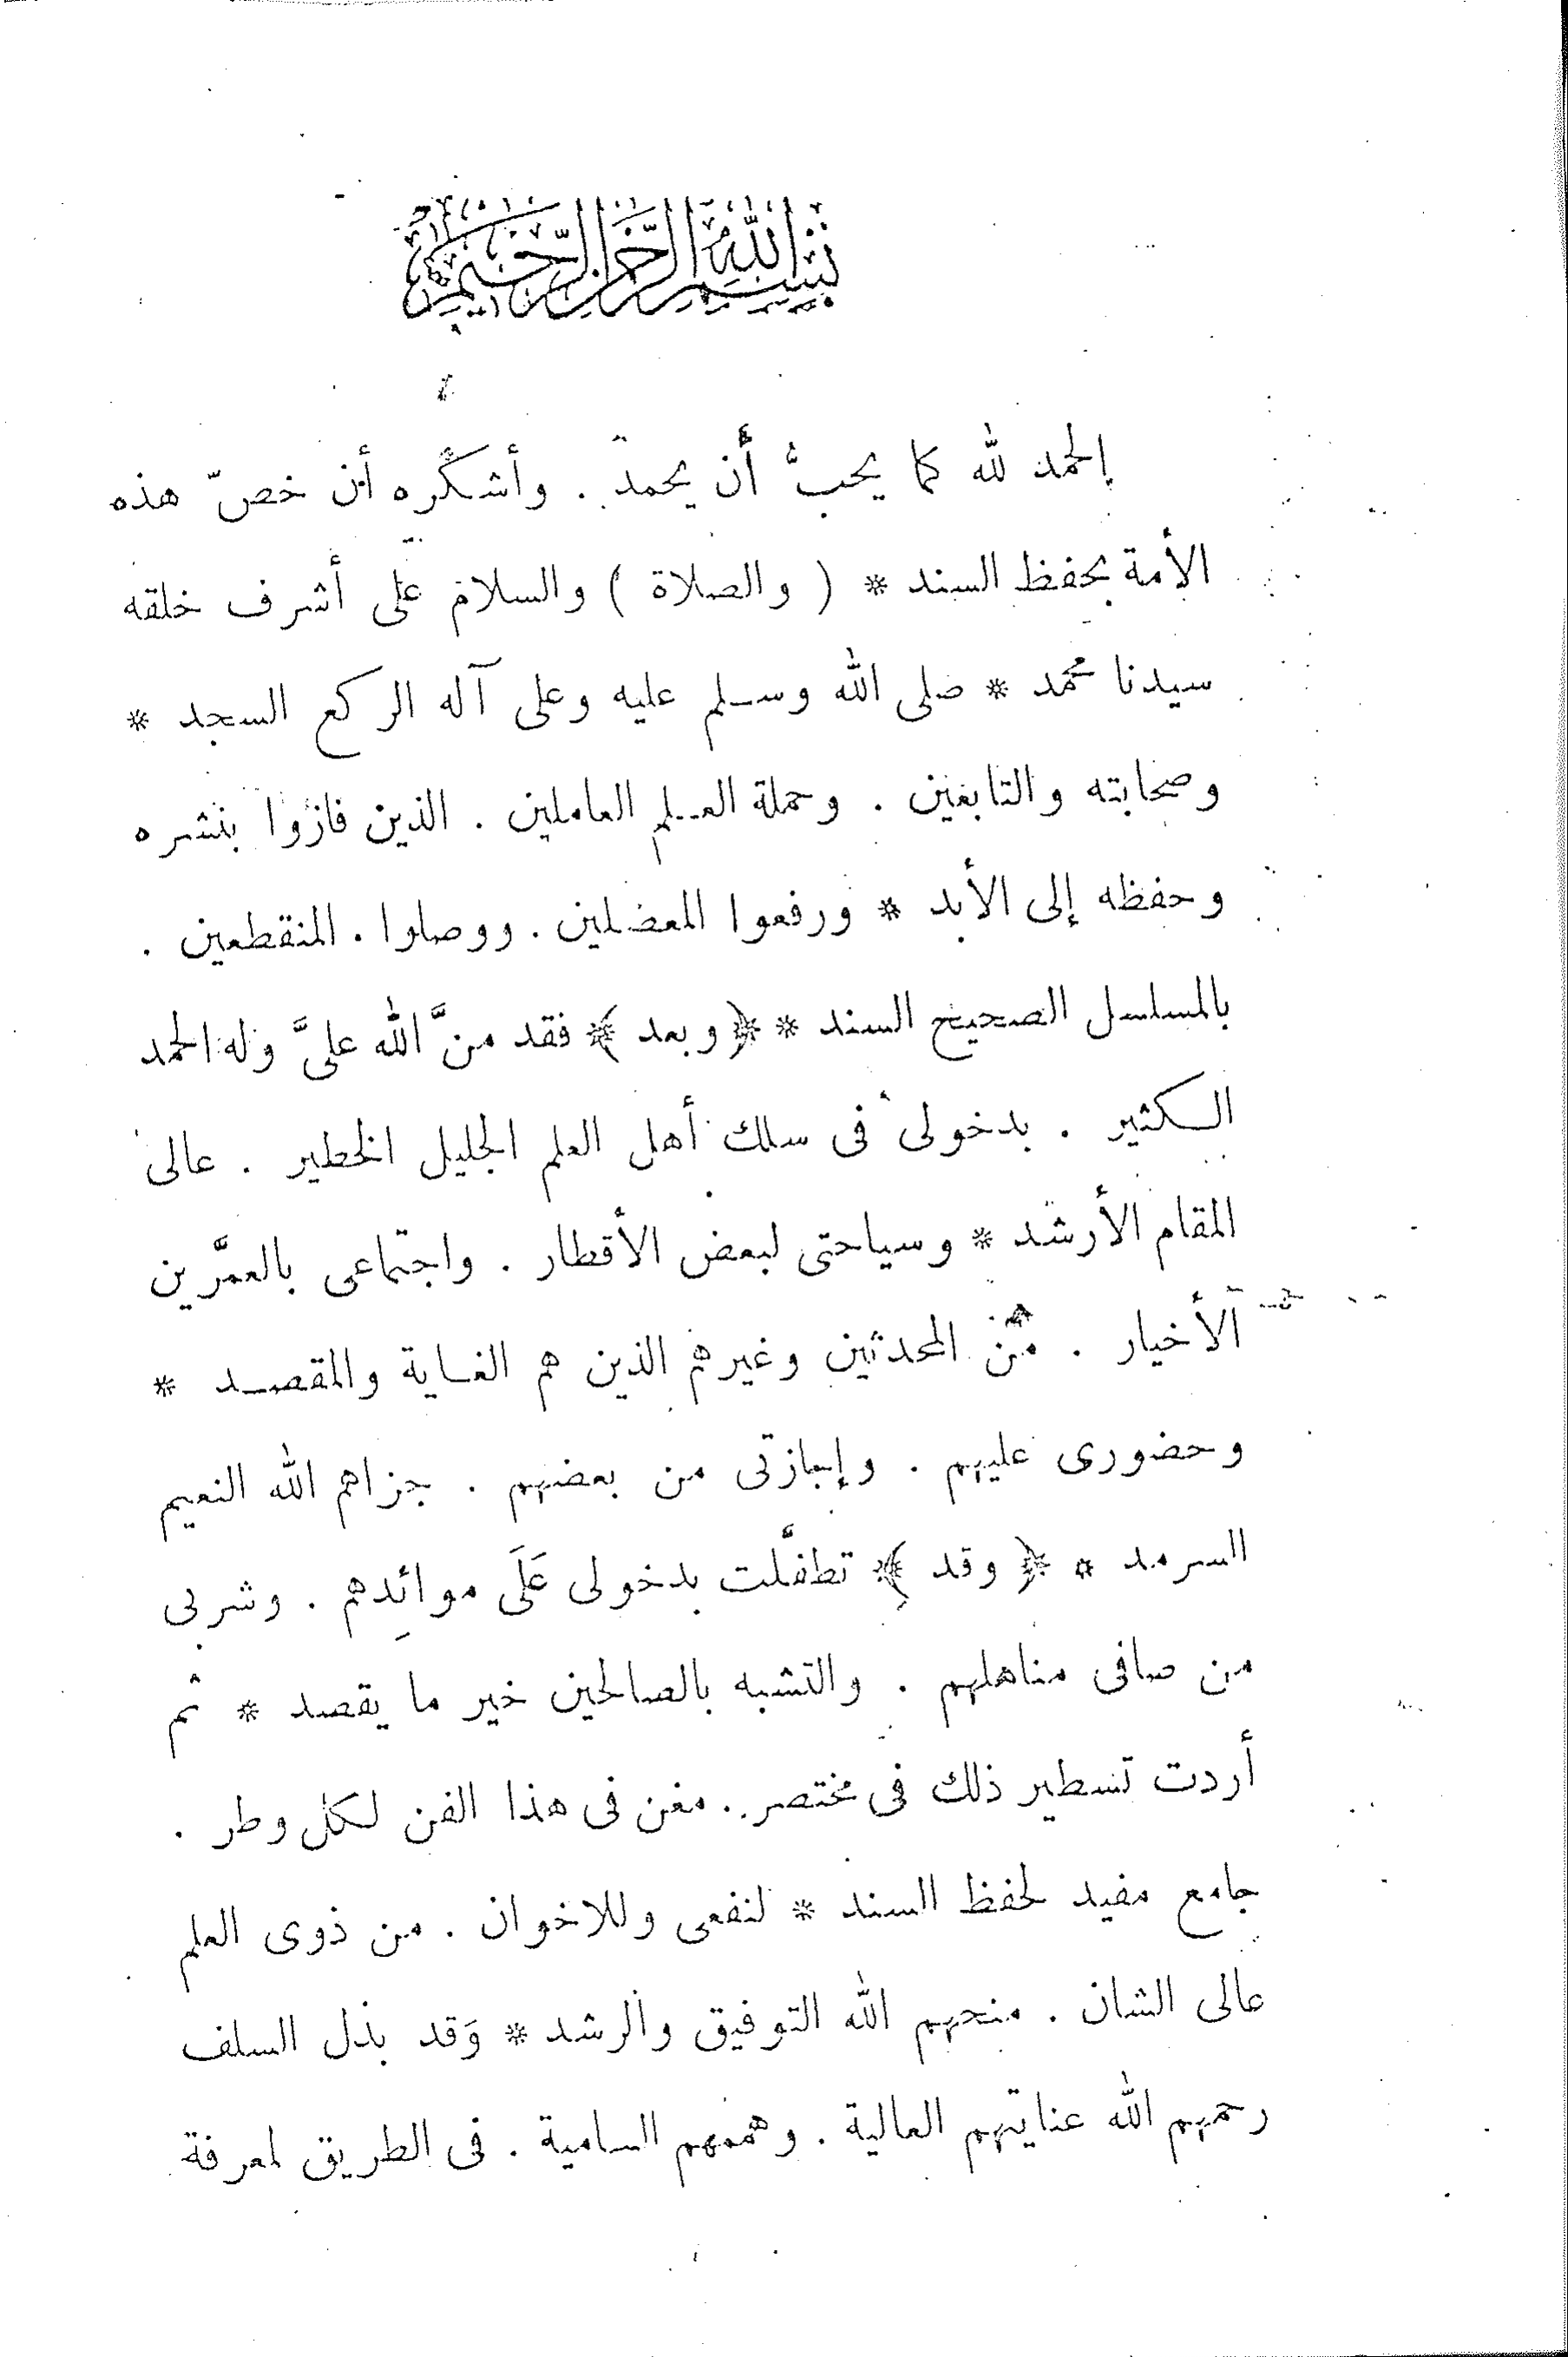 بسم الله الرحمن الرحيم
الحمد لله كما يحبُّ أن يحمد . وأشكره أن خصّ هذه
الأمة بحفظ السند * ( والصلاة ) والسلام على أشرف خلقه
سيدنا محمد * صلى الله وسلم عليه وعلى آله الركع السجد *
وصحابته والتابعين . وحملة العلم العاملين . الذين فازوا بنشره
وحفظه إلى الأبد * ورفعوا المعضلين . ووصلوا . المنقطعين .
بالمسلسل الصحيح السند * ﴿ وبعد ﴾ فقد منَّ الله علىَّ وله الحمد
الكثير . بدخولى فى سلك أهل العلم الجليل الخطير . عالى
المقام الأرشد * وسياحتى لبعض الأقطار . واجتماعى بالعمَّرين
الأخيار . من المحدثين وغيرهم الذين هم الغاية والمقصد *
وحضورى عليهم . وإجازتى من بعضهم . جزاهم الله النعيم
السرمد * ﴿ وقد ﴾ تطفلَّت بدخولى عَلَى موائدِهم . وشربى
من صافى مناهلهم . والتشبه بالصالحين خير ما يقصد * ثم
أردت تسطير ذلك فى مختصر . مغن فى هذا الفن لكل وطر .
جامع مفيد لحفظ السند * لنفعى وللاخوان . من ذوى العلم
عالى الشان . منحهم الله التوفيق والرشد * وَقد بذل السلف
رحمهم الله عنايتهم العالية . وهممهم السامية . فى الطريق لمعرفة